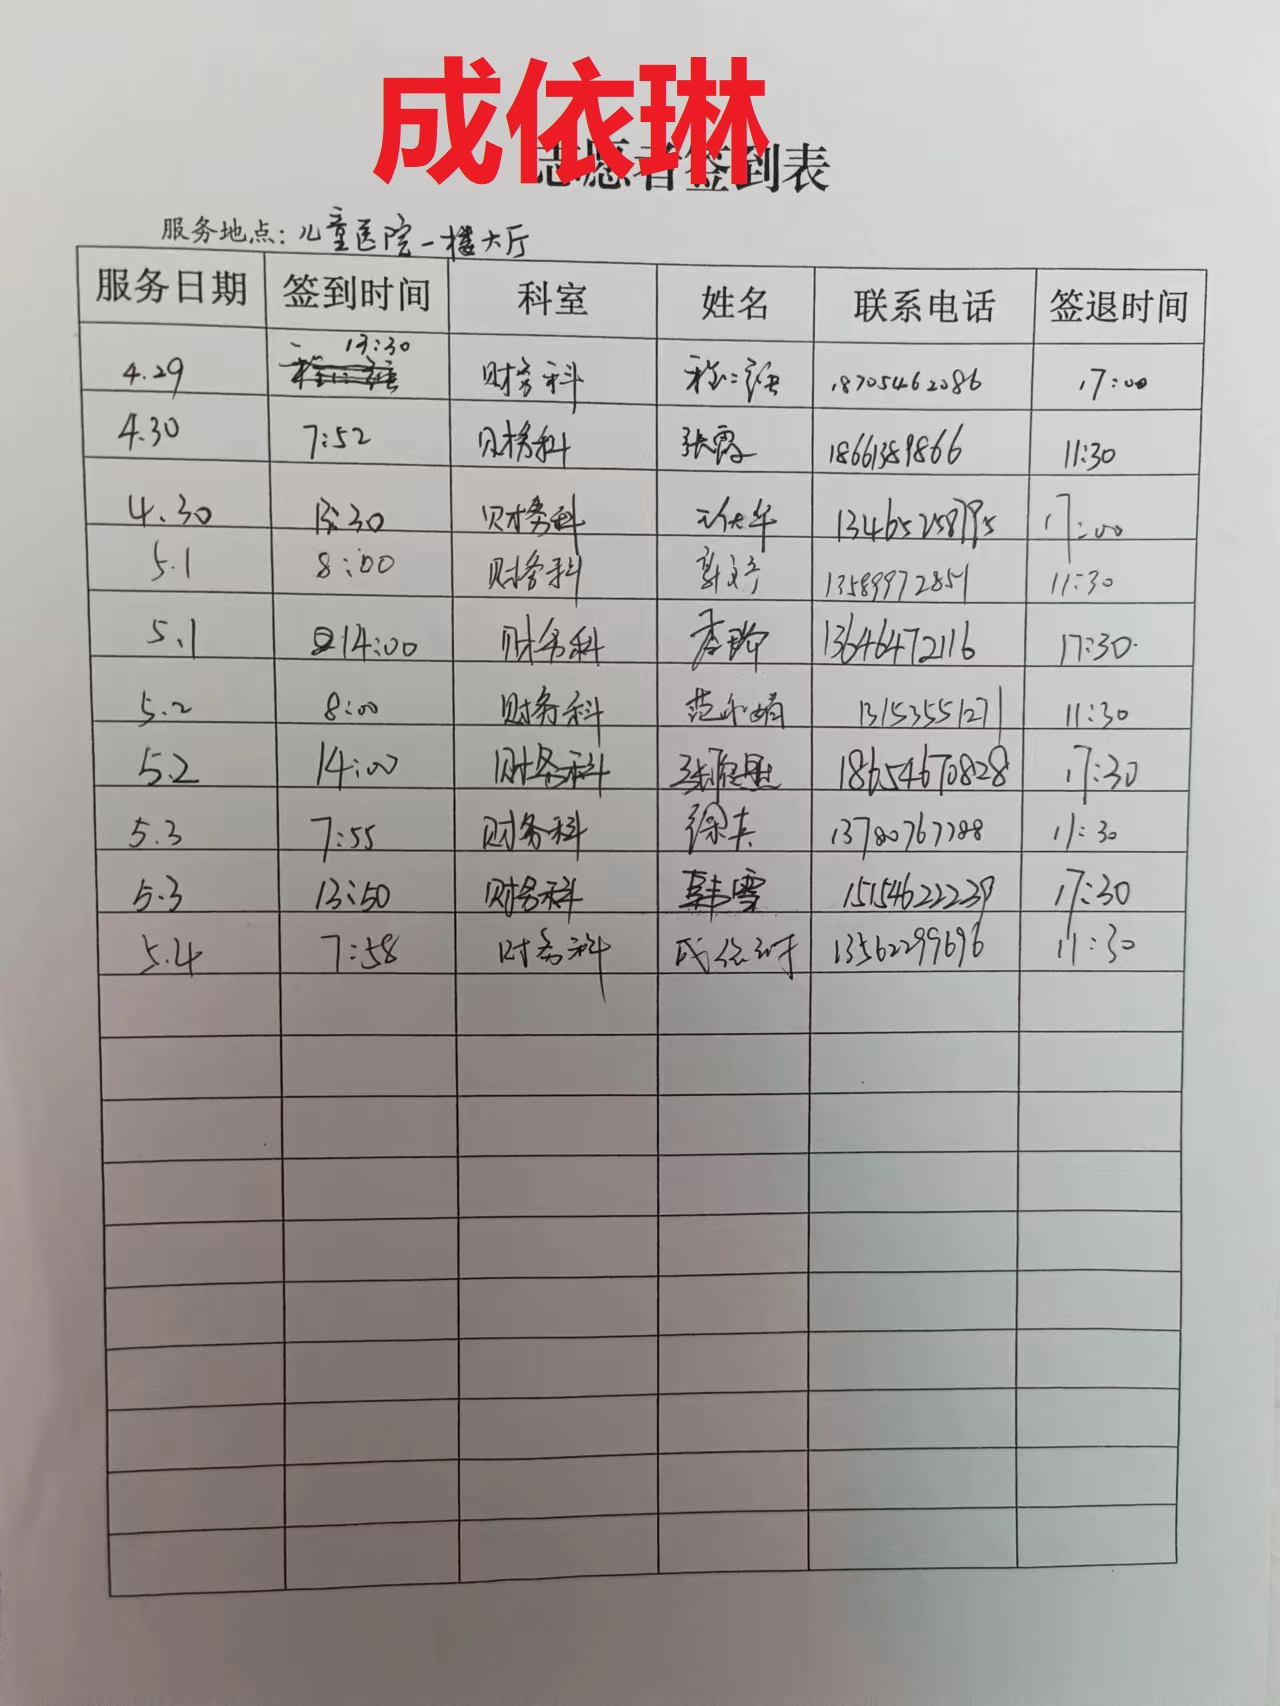 成依琳
志愿者签到表
服务地点: 儿童医院一楼大厅
服务日期 签到时间 科室 姓名 联系电话 签退时间
4.29 13:30 财务科 18705462086 17:00
4.30 7:52 财务科 张霞 18661389866 11:30
4.30 13:30 财务科 13465258795 17:00
5.1 8:00 财务科 13589972851 11:30
5.1 14:00 财务科 13646472116 17:30
5.2 8:00 财务科 13153551271 11:30
5.2 14:00 财务科 18654670828 17:30
5.3 7:55 财务科 11:30
5.3 13:50 财务科 韩雪 15154622239 17:30
5.4 7:58 财务科 成依琳 13562299696 11:30